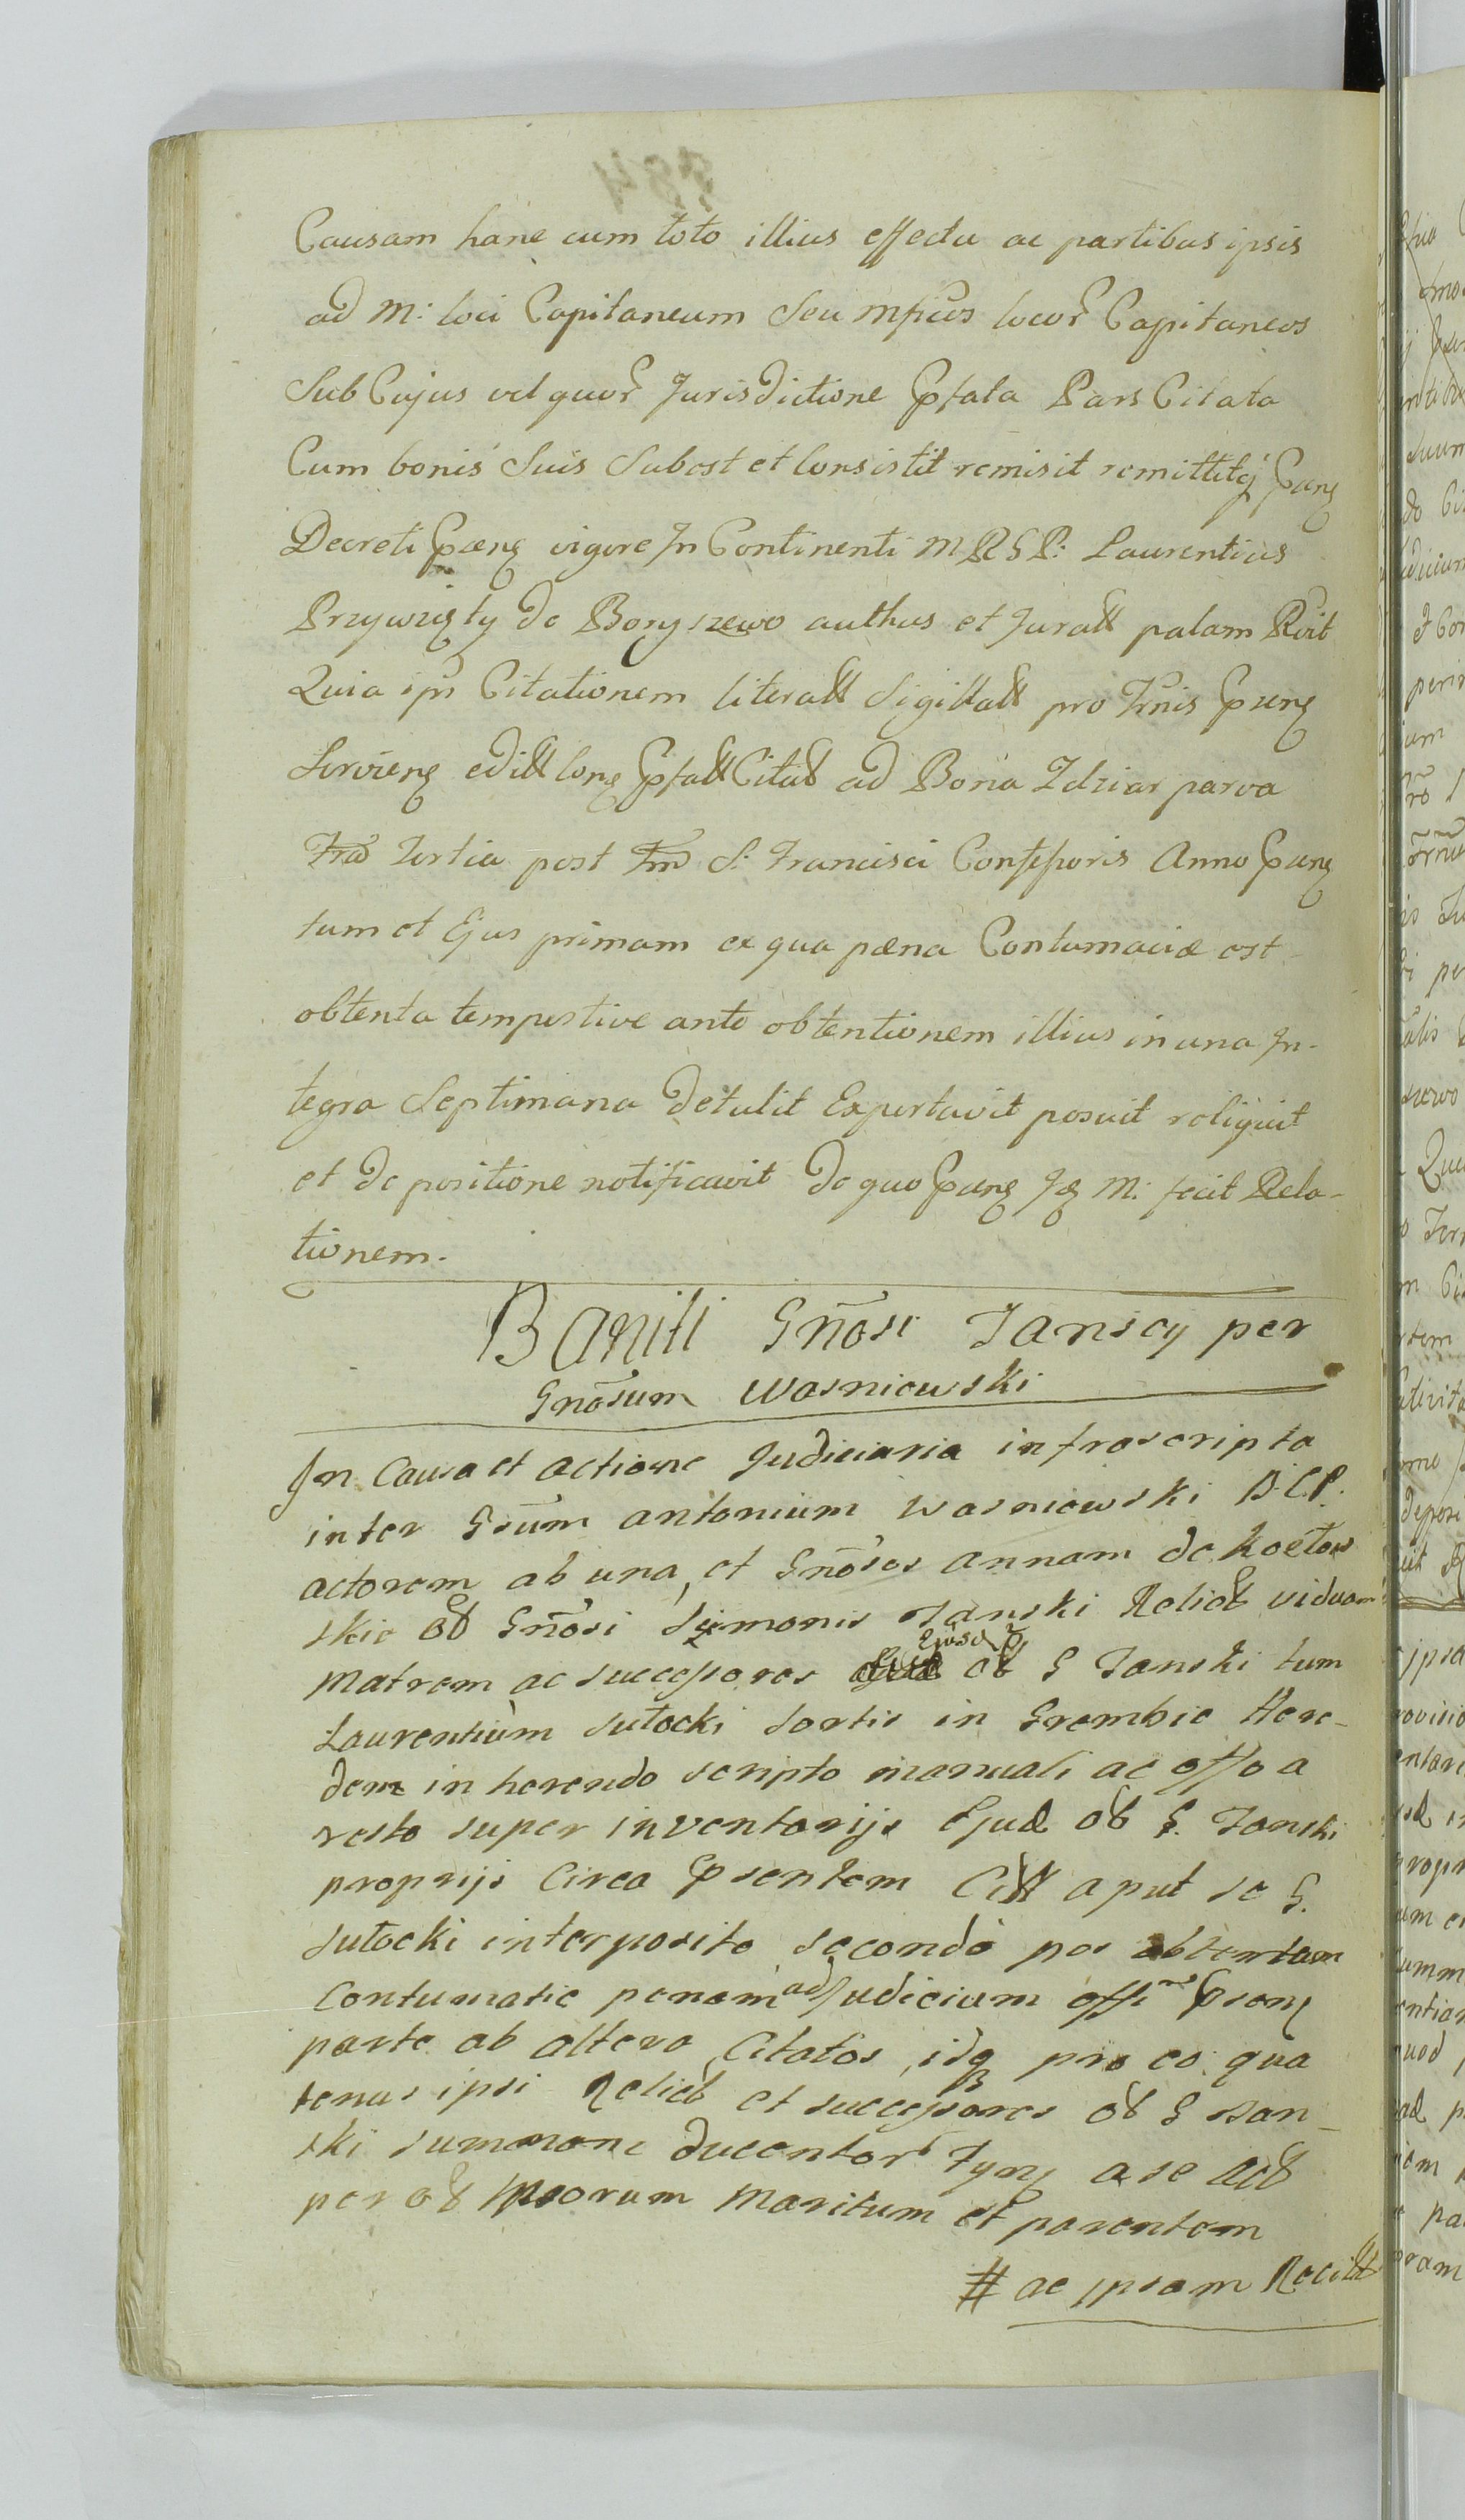 Causam hanc cum toto illius effectu ac partibus ipsis
ad M: loci Capitaneum Seu mficos locor Capitaneos
Sub Cujus vel quor Jurisdictione Pfata Pars Citata
Cum bonis Suis Subest et Consistit remisit remittitq Puns
Decreti Pnens vigore In Continenti M R G P: Laurentius
Przywzięty de Boryszewo authus et Jurat palam Rvit
Quia ips Citationem literatt Sigillatt pro Trnis Pnens
Servien editt Pfatt Citat ad Bona Zdziar parva
Fra tertia post Fm S: Francisci Confessoris Anno Puns
tum et Ejus primam ex qua pæna Contumaciæ est
obtenta tempestive ante obtentionem illius in una In-
tegra Septimana detulit Exportavit posuit reliquit
et de positione notificavit de quo Puns M: fecit Rela-
tionem.
Baniti Gnosi Janscy per
Gnosum Wasniewski
In Causa et actione Judiciaria infrascripta
inter Gsum antonium Wasniewski B.C.P.
actorem ab una, et Gnosos annam de koctow
skie ob Gnosi Szimonis Janski Relict viduam
Ejusd
Matrem ac successores ob G Janski tum
Laurentium sutocki sortis in Grembic Here-
dem in herendo scripto manuali ac offo a
resto super inventarijs Ejud ob G. Janski
proprijs Circa Psentem Citt aput se G.
sutocki interposito secondo pos obtentam
Contumatie penam ad Judicium offi Psens
parte ab altera, Citatos, idq pro eo qua
tenus ipsi Relict et successores ob G Jan-
ski summam ducentor Fyns a se act
per ob ipsorum Maritum et parentem
# ac ipsam Recitt